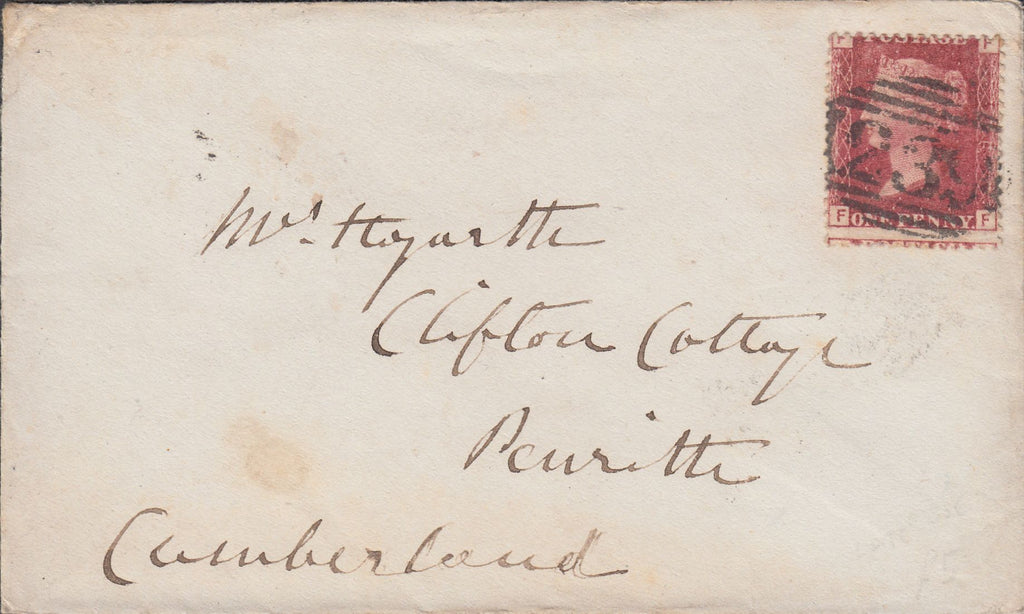 F POSTAGE F
235
F ONE PENNY F
Mrs. Hogarth
Clifton Cottage
Penrith
Cumberland